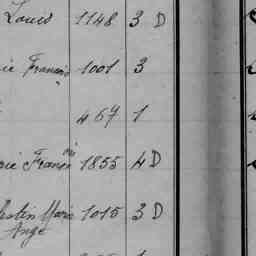 Louis 1148 3 D
rie François 1001 3
467 1
rie François 1855 4 D
lestin Marie 1015 3 D
Ange